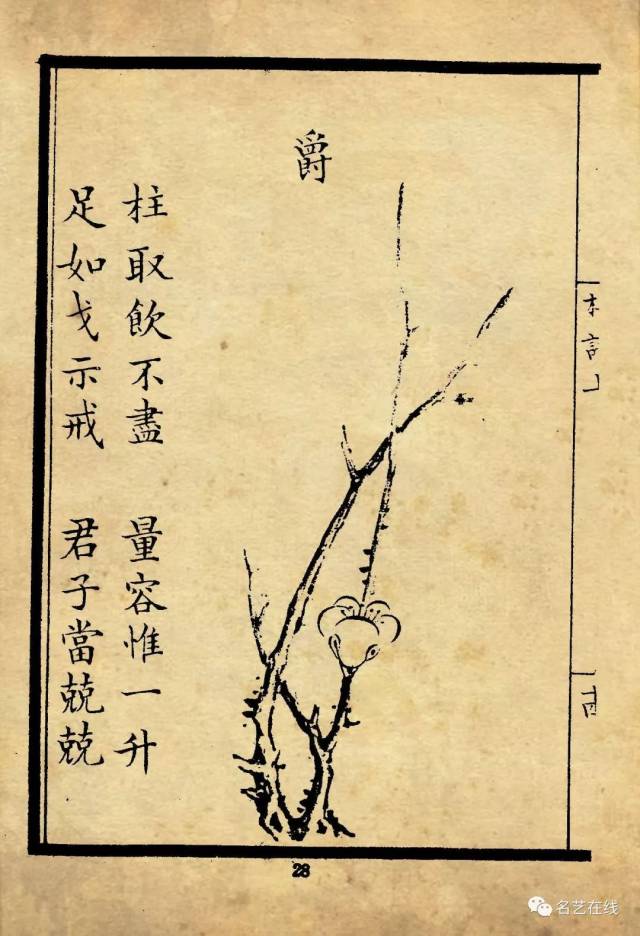 爵
柱取飲不盡 量容惟一升
足如戈示戒 君子當兢兢
28
名艺在线